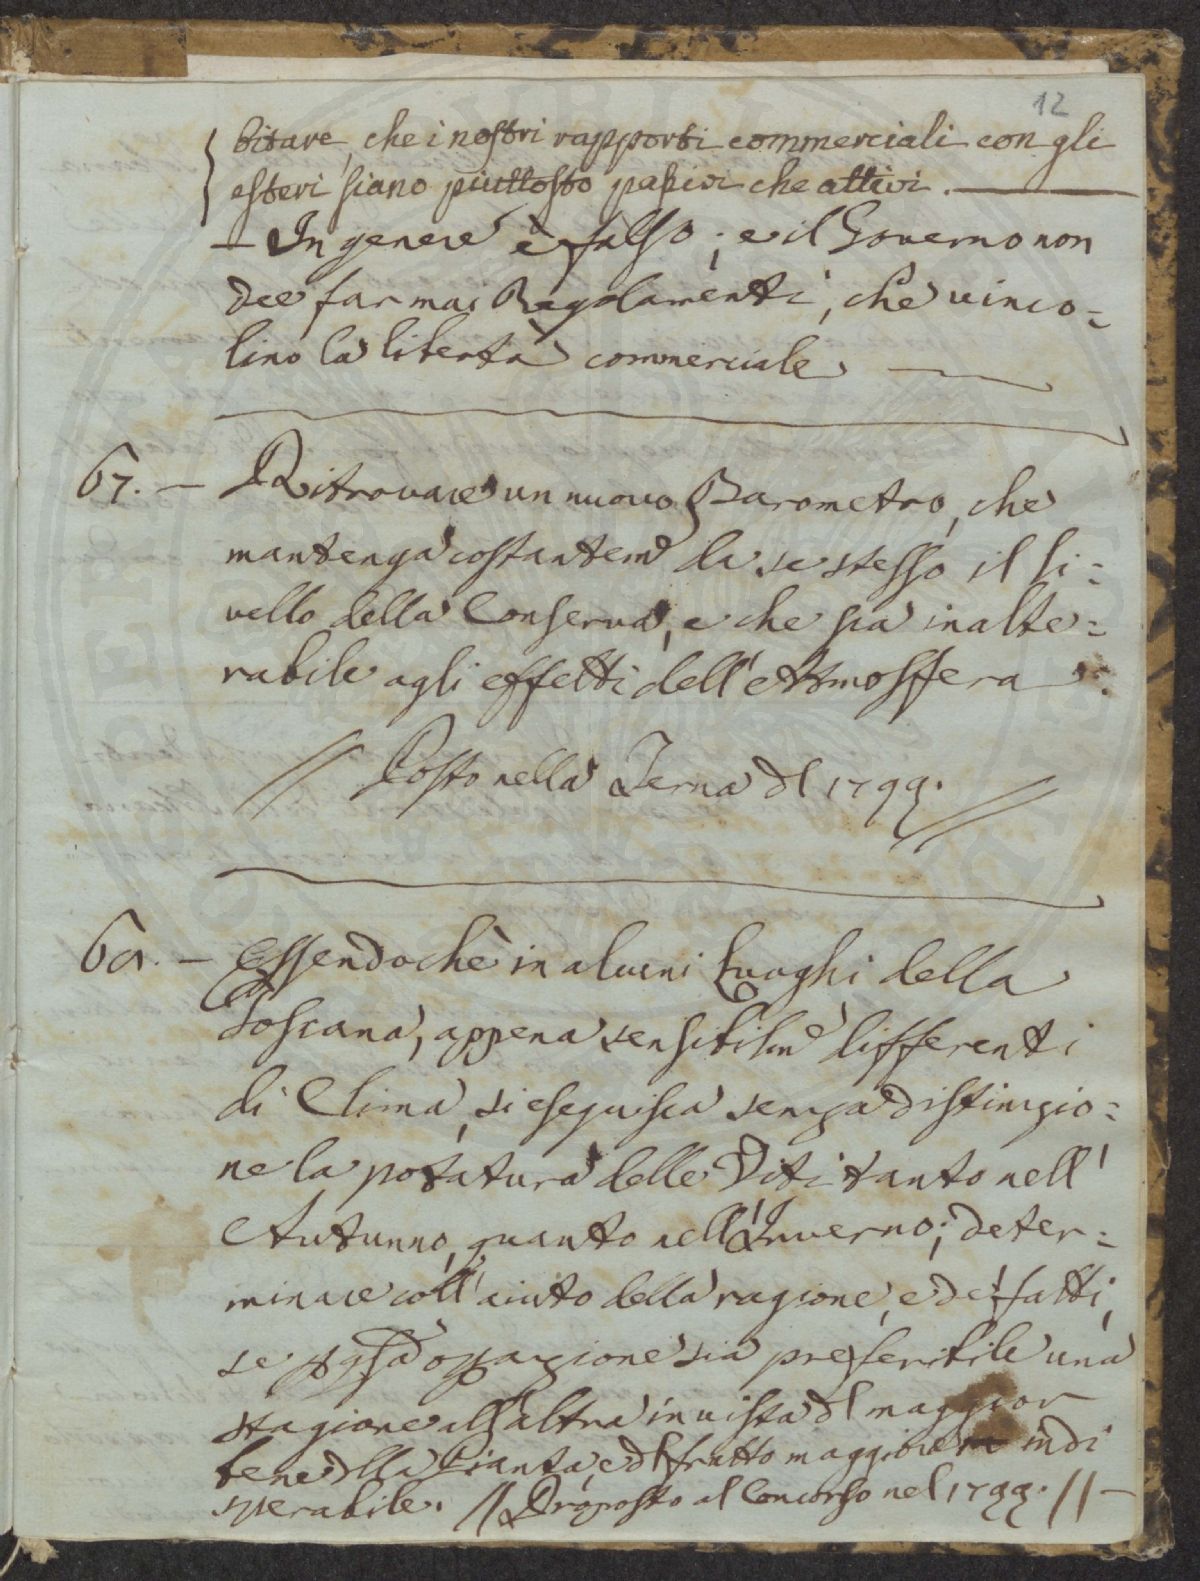 12
bitare, che i nostri rapporti commerciali con gli
esteri siano piuttosto passivi che attivi.
— In genere è falso; e il Governo non
dee far mai Regolamenti, che vinco=
lino la libertà commerciale
67. — Ritrovare un nuovo Barometro, che
mantenga costantem.e da se stesso il li=
vello della Conserva, e che sia inalte=
rabile agli effetti dell'Atmosfera
// Posto nella Terna dl 1799. //
68. — Essendochè in alcuni Luoghi della
Toscana, appena sensibilm.e differenti
di Clima, si eseguisca senza distinzio=
ne la potatura delle Viti tanto nell'
Autunno, quanto nell'Inverno; deter=
minare coll'aiuto della ragione, e de' fatti,
se p q.sta operazione sia preferibile una
stagione all'altra in vista dl maggior
bene dlla Pianta, e dl frutto maggiore indi
sperabile. // Proposto al Concorso nel 1799. // —